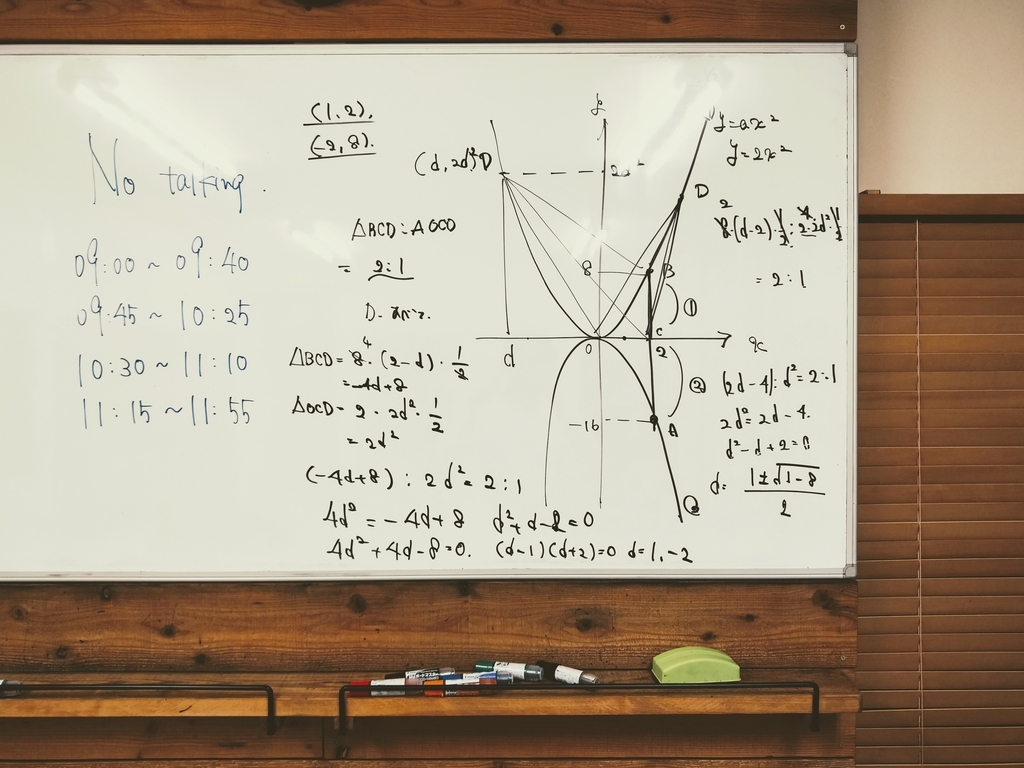 No talking.
09:00 ~ 09:40
09:45 ~ 10:25
10:30 ~ 11:10
11:15 ~ 11:55
(1,2),
(-2,8).
(d,2d²) D
△BCD : △OCD
= 2:1
D
△BCD = 8⁴ · (2-d) · 1/2
= -4d+8
△OCD = 2 · 2d² · 1/2
= 2d²
(-4d+8) : 2d² = 2:1
4d² = -4d+8 d²+d-2=0
4d²+4d-8=0. (d-1)(d+2)=0 d=1,-2
y
2d²
8
d
0
-16
D
B
C
2
A
x
①
②
y=ax²
y=2x²
2
8·(d-2)·1/2 : 2·2d²·1/2
= 2:1
(2d-4):d²=2:1
2d²=2d-4
d²-d+2=0
d= 1±√1-8
2